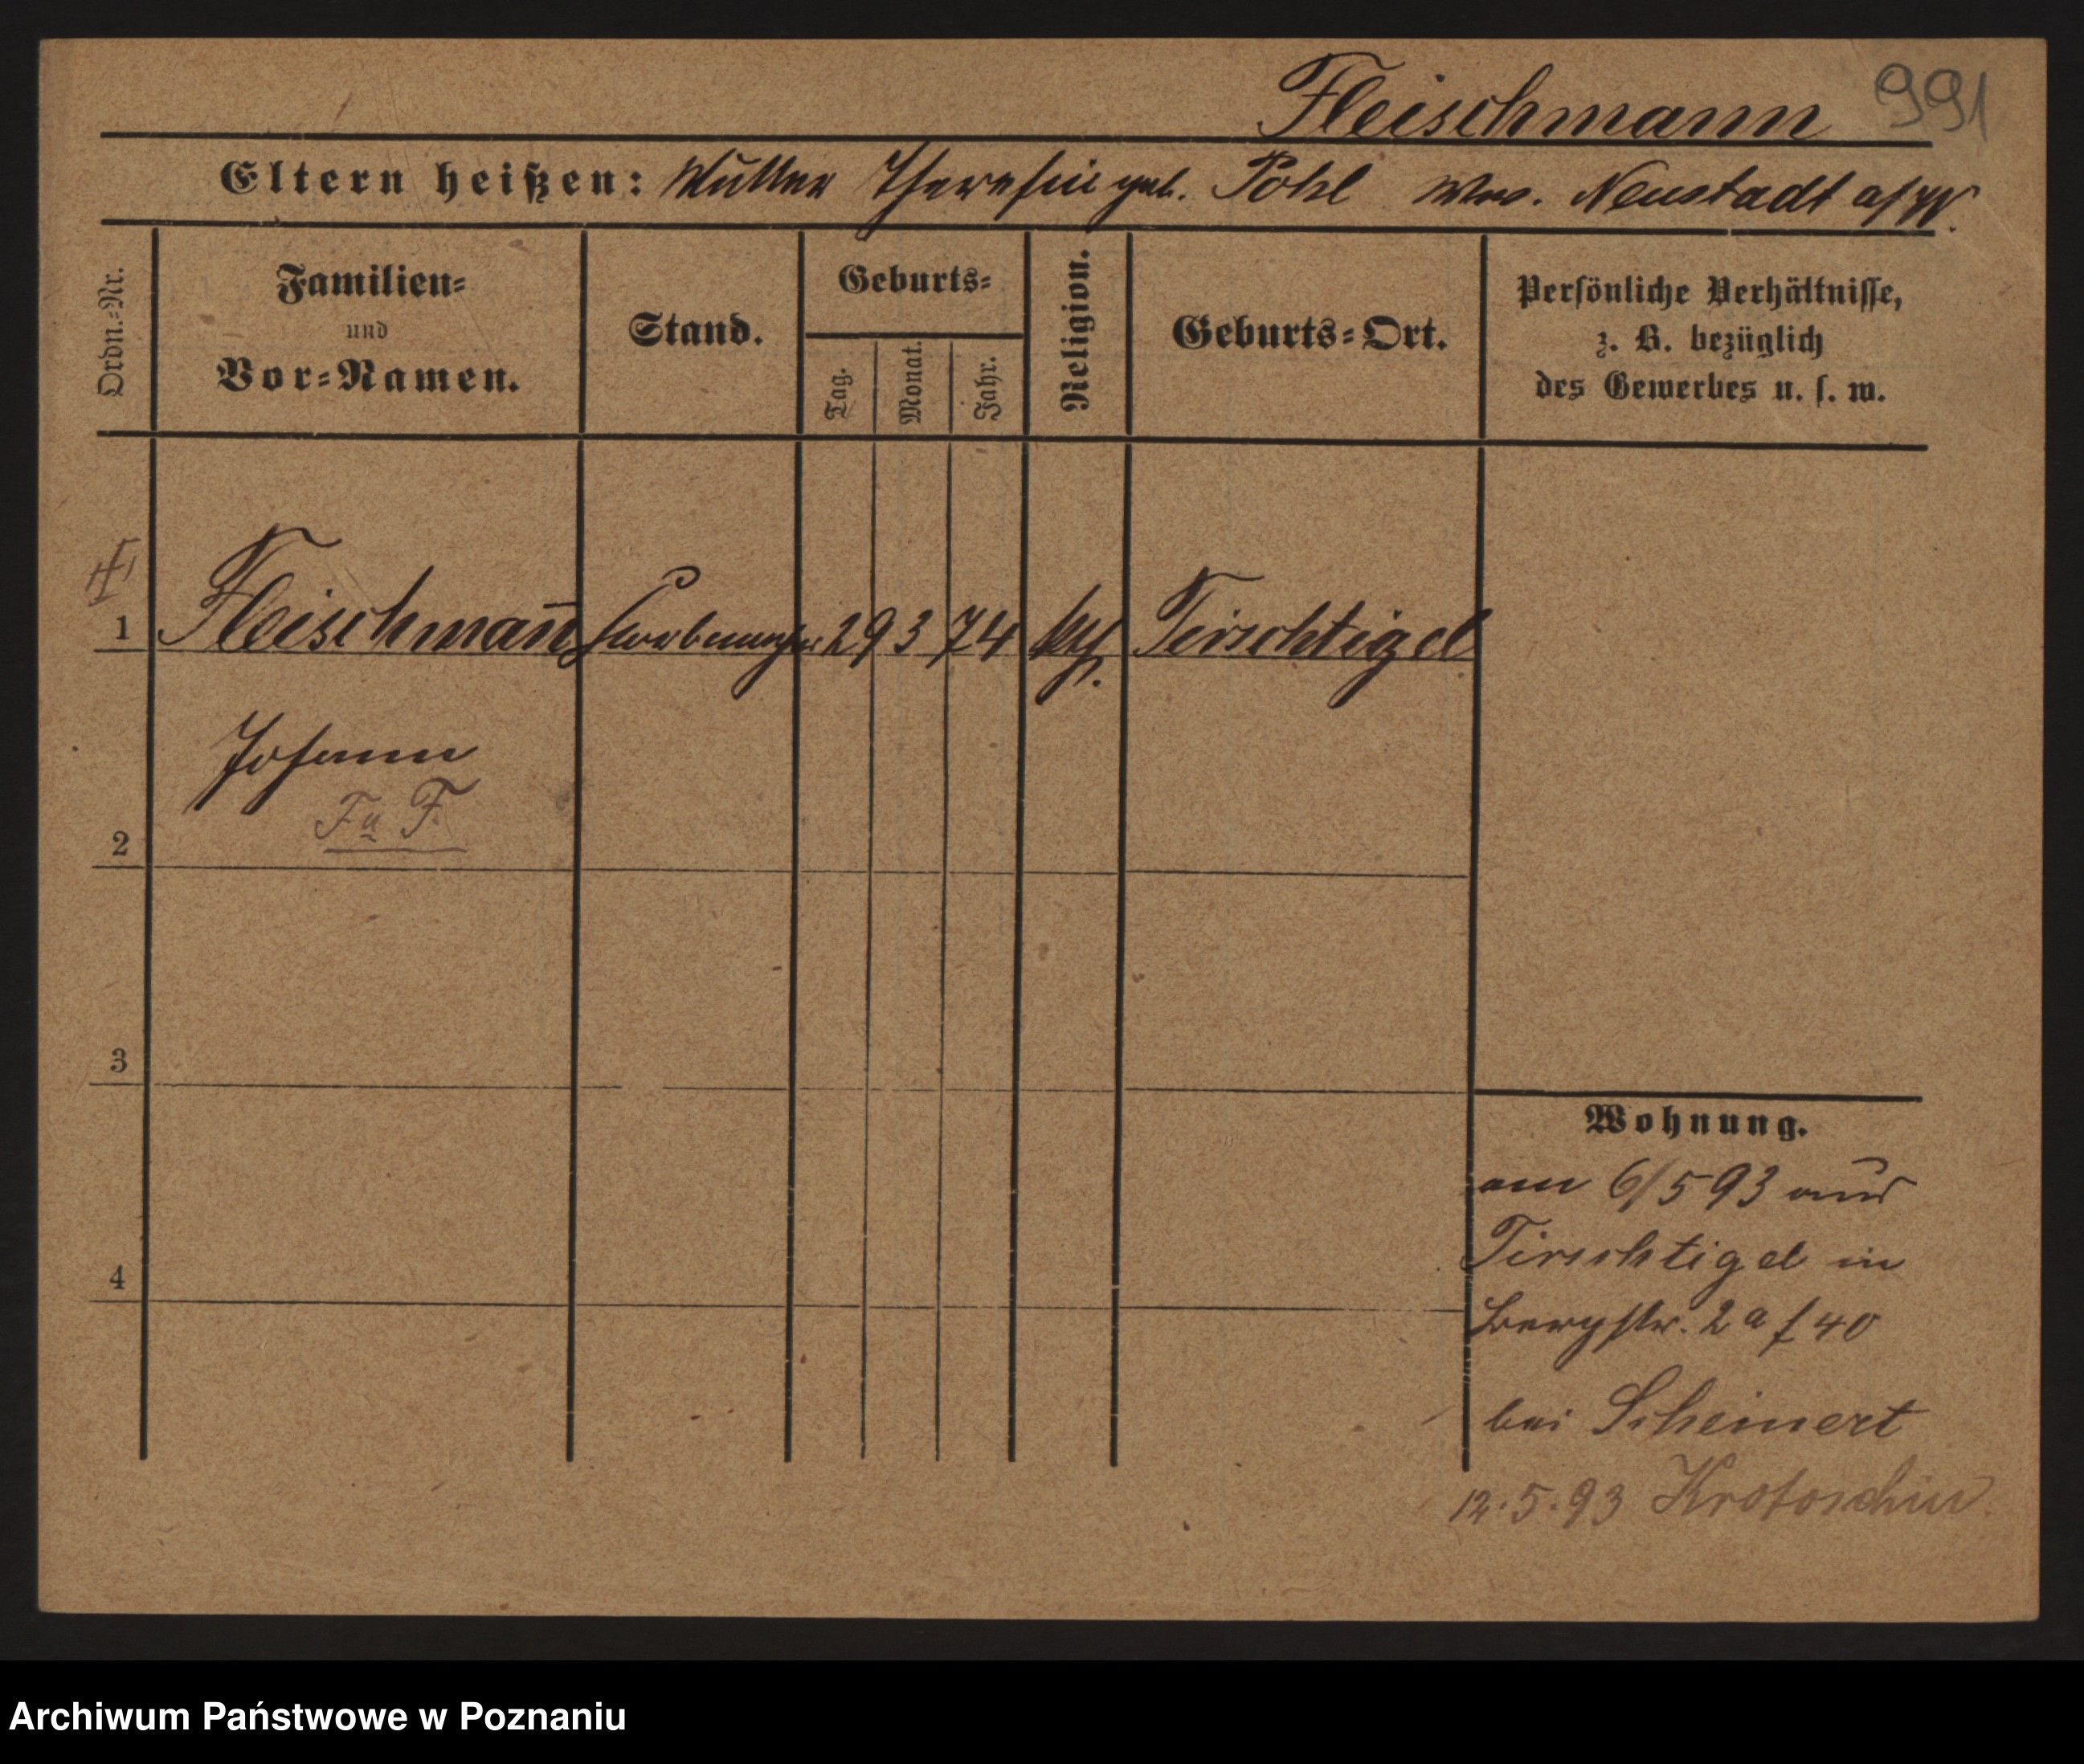 Fleischmann 991
Eltern heißen: Mutter Theresie geb. Pohl Wwe. Neustadt a/W.
Ordn.-Nr.
Familien-
und
Vor-Namen.
Stand.
Geburts-
Tag.
Monat.
Jahr.
Religion.
Geburts-Ort.
Persönliche Verhältnisse,
z. B. bezüglich
des Gewerbes u. s. w.
1 Fleischman̄ 29 3 74 kth. Tirschtigel
Johann
F a F.
2
3
4
Wohnung.
am 6/5 93 aus
Tirschtigel in
Bergstr. 2a f 40
bei Scheinert
12.5.93 Krotoschin